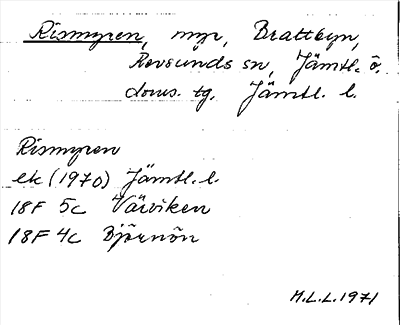 Rismyren, myr, Brattbyn,
Revsunds sn, Jämtl. ö.
doms. tg. Jämtl. l.
Rismyren
ek (1970) Jämtl. l.
18F 5c Värviken
18F 4c Björnön
M.L.L. 1971